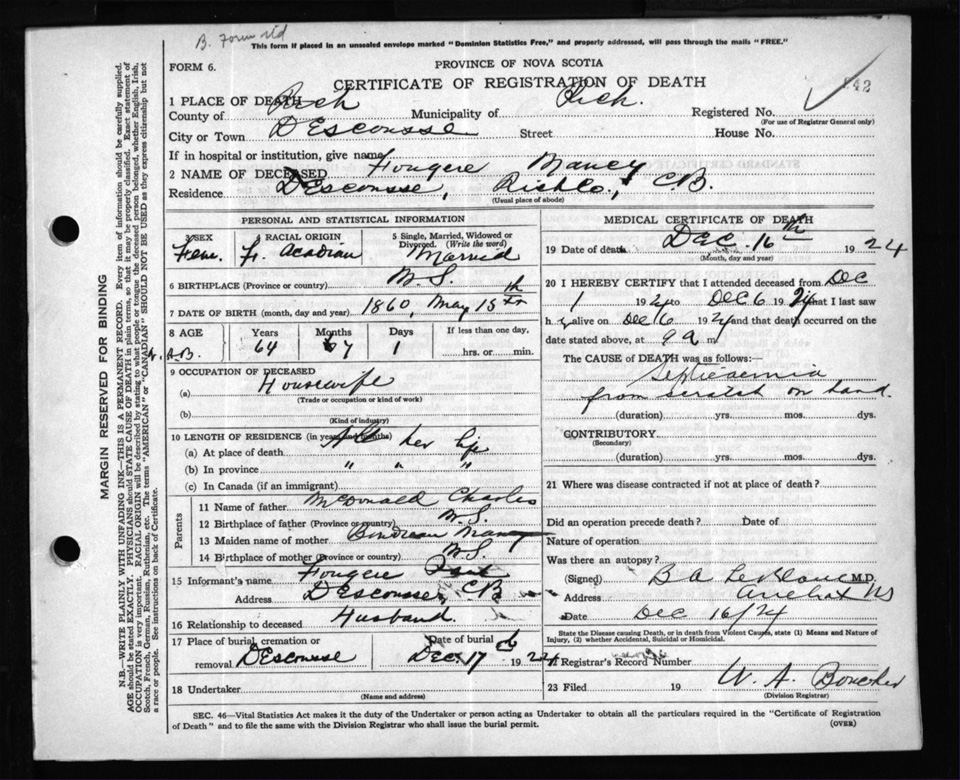 B. Form
This form if placed in an unsealed envelope marked "Dominion Statistics Free," and properly addressed, will pass through the mails "FREE."
FORM 6.
PROVINCE OF NOVA SCOTIA
CERTIFICATE OF REGISTRATION OF DEATH
1 PLACE OF DEATH
County of Rich Municipality of Rich. Registered No.
(For use of Registrar General only)
City or Town DEscousse Street House No.
If in hospital or institution, give name
2 NAME OF DECEASED Fougere Nancy
Residence DEscousse, Rich Co., CB.
(Usual place of abode)
PERSONAL AND STATISTICAL INFORMATION
3 SEX Fem. 4 RACIAL ORIGIN Fr. Acadian 5 Single, Married, Widowed or Divorced. (Write the word) Married
6 BIRTHPLACE (Province or country) N.S.
7 DATE OF BIRTH (month, day and year) 1860, May 15th
8 AGE Years 64 Months 7 Days 1 If less than one day, hrs. or min.
9 OCCUPATION OF DECEASED
(a) Housewife
(Trade or occupation or kind of work)
(b)
(Kind of industry)
10 LENGTH OF RESIDENCE (in years and months)
(a) At place of death All her life
(b) In province " " "
(c) In Canada (if an immigrant)
Parents
11 Name of father McDonald Charles
12 Birthplace of father (Province or country) N.S.
13 Maiden name of mother
14 Birthplace of mother (Province or country) N.S.
15 Informant's name Fougere
Address DEscousse, CB
16 Relationship to deceased Husband.
17 Place of burial, cremation or removal DEscousse Date of burial Dec. 17th 1924
18 Undertaker
(Name and address)
MEDICAL CERTIFICATE OF DEATH
19 Date of death Dec. 16th 1924
(Month, day and year)
20 I HEREBY CERTIFY that I attended deceased from Dec
1 1924 to Dec 6 1924 that I last saw
h er alive on Dec 6 1924 and that death occurred on the
date stated above, at 9 a m
The CAUSE of DEATH was as follows:
Septicaemia
from scratch on hand.
(duration) yrs. mos. dys.
CONTRIBUTORY
(Secondary)
(duration) yrs. mos. dys.
21 Where was disease contracted if not at place of death?
Did an operation precede death? Date of
Nature of operation
Was there an autopsy?
(Signed) B A LeBlanc M.D.
Address Arichat NS
Date Dec 16/24
State the Disease causing Death, or in death from Violent Causes, state (1) Means and Nature of Injury, (2) whether Accidental, Suicidal or Homicidal.
Registrar's Record Number
23 Filed 19 W. A. Boucher
(Division Registrar)
SEC. 46—Vital Statistics Act makes it the duty of the Undertaker or person acting as Undertaker to obtain all the particulars required in the "Certificate of Registration
of Death" and to file the same with the Division Registrar who shall issue the burial permit.
(OVER)
MARGIN RESERVED FOR BINDING
N.B.—WRITE PLAINLY WITH UNFADING INK—THIS IS A PERMANENT RECORD. Every item of information should be carefully supplied.
AGE should be stated EXACTLY. PHYSICIANS should STATE CAUSE OF DEATH in plain terms, so that it may be properly classified. Exact statement of
OCCUPATION is very important. RACIAL ORIGIN will be described by stating to what people or tongue the deceased person belonged, whether English, Irish,
Scotch, French, German, Russian, Ruthenian, etc. The terms "AMERICAN" or "CANADIAN" SHOULD NOT BE USED as they express citizenship but not
a race or people. See instructions on back of Certificate.